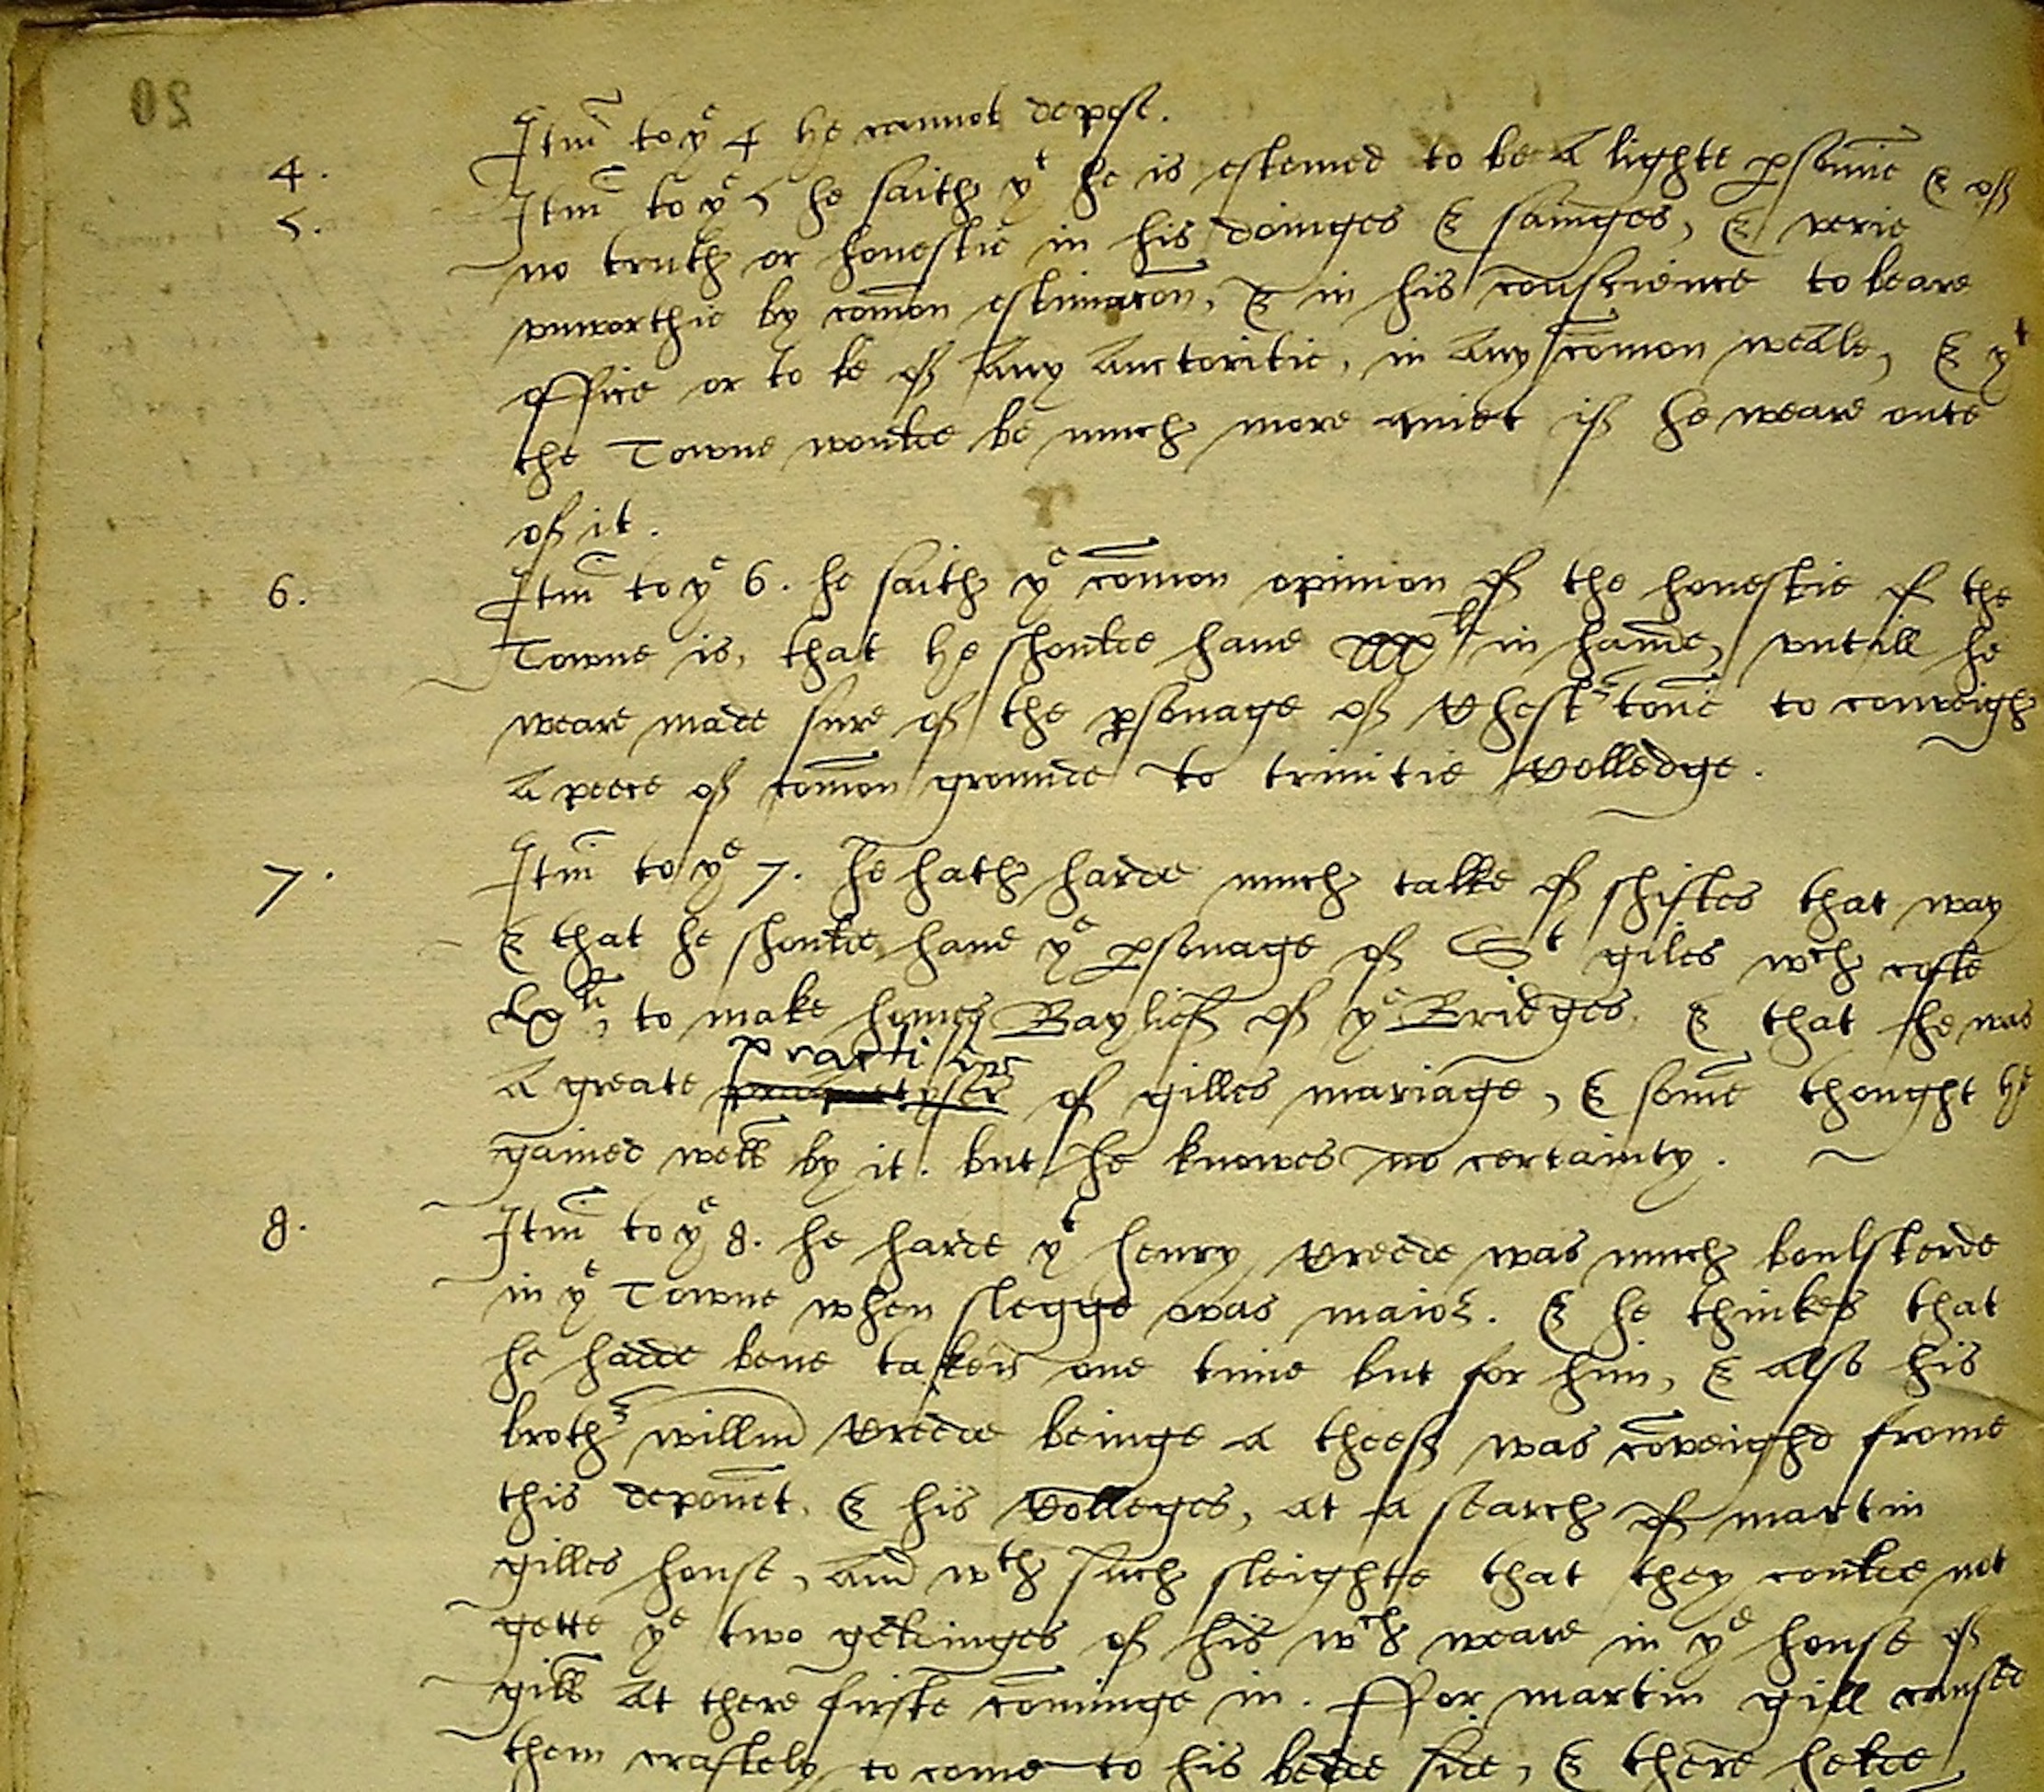 20
4. Itm̃ to yᵉ 4 he cannot depose.
5. Itm̃ to yᵉ 5 he saith yᵗ he is estemed to be a lighte ꝑsonne & off
no truth or honestie in his doinges & sainges, & verie
vnworthie by com̃on estimacon, & in his conscience to beare
office or to be off any auctoritie, in any com̃on weale, & yᵗ
the Towne woulde be much more quiet iff he weare oute
off it.
6. Itm̃ to yᵉ 6. he saith yᵉ com̃on opinion off the honestie off the
Towne is, that he shoulde haue xxxˡⁱ in hande, vntill he
weare made sure off the ꝑsonage off to conveigh
a peece off com̃on grounde to trinitie Colledge.
7. Itm̃ to yᵉ 7. he hath harde much talke off shiftes that way
& that he shoulde haue yᵉ ꝑsonage off Sᵗ giles wᶜʰ coste
lxˡⁱ, to make Baylieff off yᵉ Bridges, & that he was
practiser
a greate of gilles mariage, & some thought he
gained well by it. but he knowes no certainty.
8. Itm̃ to yᵉ 8. he harde yᵗ henry Creede was much boulsterde
in yᵉ Towne when slegge was maior. & he thinkes that
he hadde bene taken one time but for him, & also his
brothʳ willm Creede beinge a theeff was cõveighd frome
this deponẽt, & his Colleges, at a search off martin
gilles house, and wᵗʰ such sleighte that they coulde not
gette yᵉ two geldinges off his wᶜʰ weare in yᵉ house off
gill at there firste com̃inge in. ffor martin gill caused
them craftely to come to his bedde side, & there helde